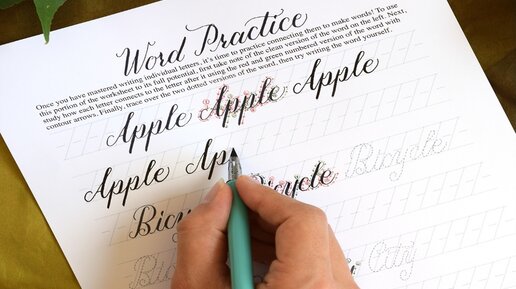 Word Practice
Once you have mastered writing individual letters, it's time to practice connecting them to make words! To use
this portion of the worksheet to its full potential, first take note of the clean version of the word on the left. Next,
study how each letter connects to the letter after it using the red and green numbered version of the word with
contour arrows. Finally, trace over the two dotted versions of the word, then try writing the word yourself.
Apple Apple Apple
Apple Ap
Bicycle Bicycle
City